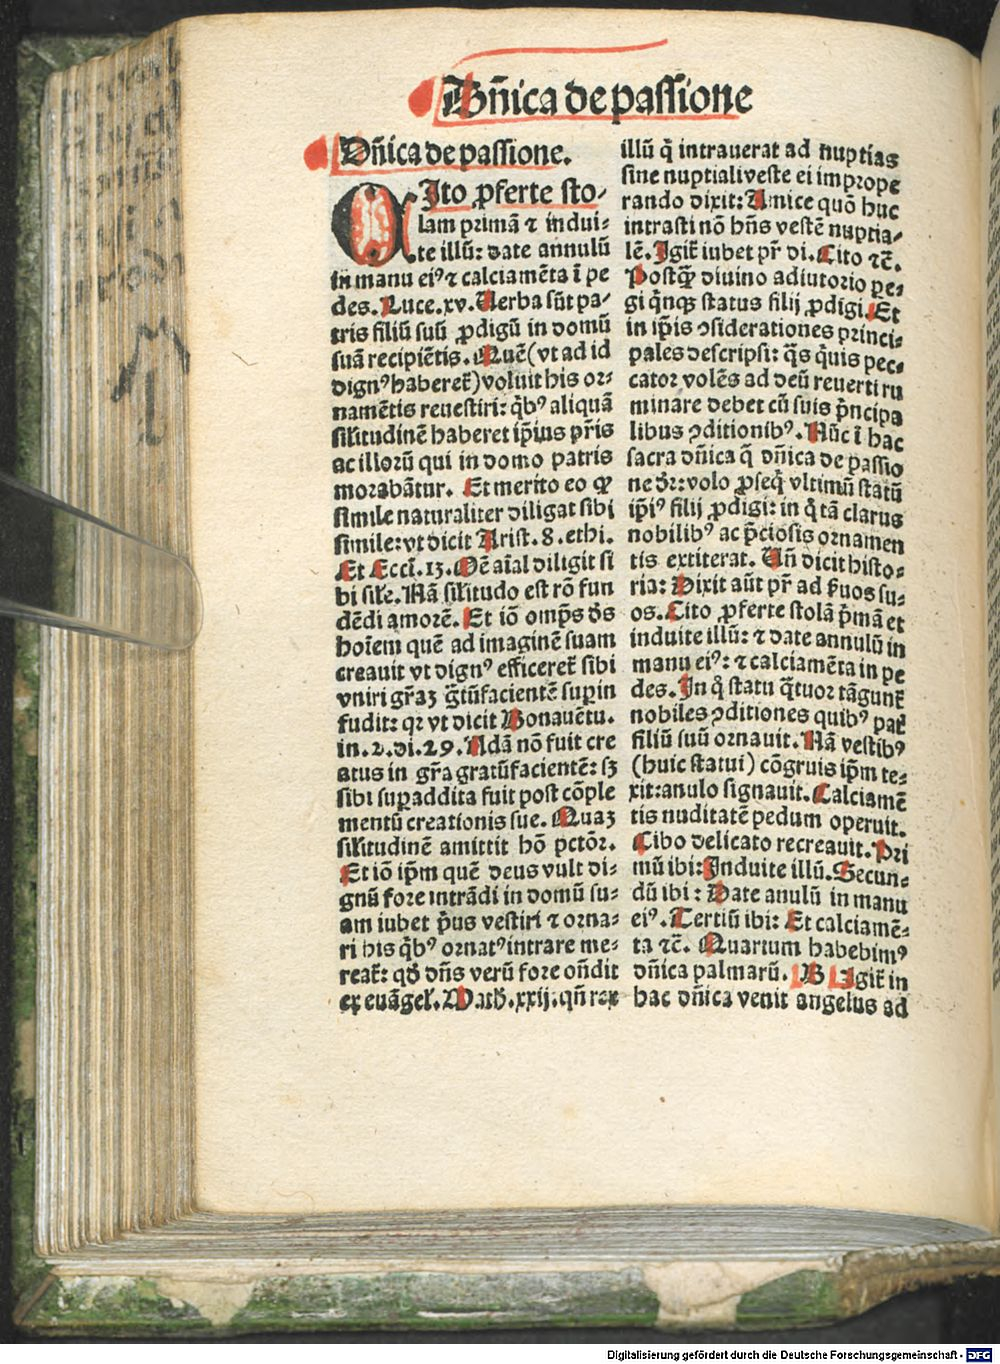 Dñica de passione
Dñica de passione.
CIto ꝓferte sto⸗
lam primã ⁊ indui⸗
te illũ: date annulũ
in manu eiꝰ ⁊ calciamẽta ĩ pe
des. Luce.xv. Uerba sũt pa⸗
tris filiũ suũ ꝓdigũ in domũ
suã recipiẽtis. Quẽ (vt ad id
dignꝰ haberet᷑) voluit his or⸗
namẽtis reuestiri: q̃bꝰ aliquã
sil̃itudinẽ haberet ip̃ius pr̃is
ac illorũ qui in domo patris
morabãtur. Et merito eo ꝙ
simile naturaliter diligat sibi
simile: vt dicit Arist. 8. ethi.
Et Eccl̃. 13. Oẽ aĩal diligit si
bi sil̃e. Nã sil̃itudo est rõ fun
dẽdi amorẽ. Et iõ omp̃s ds̃
hoĩem quẽ ad imaginẽ suam
creauit vt dignꝰ efficeret᷑ sibi
vniri gr̃aꝫ gr̃tũfacientẽ sup̱in
fudit: qꝛ vt dicit Bonauẽtu.
in.2.di.29. Adã nõ fuit cre
atus in gr̃a gratũfacientẽ: sꝫ
sibi sup̱addita fuit post cõple
mentũ creationis sue. Quaꝫ
sil̃itudinẽ amittit hõ pctõꝛ.
Et iõ ip̃m quẽ deus vult di⸗
gnũ fore intrãdi in domũ su⸗
am iubet p̃us vestiri ⁊ orna⸗
ri his q̃bꝰ ornatꝰ intrare me⸗
reat᷑: qd̃ dñs verũ fore oñdit
ex euãgel̃. Math̃.xxij. qñ rex
illũ q̃ intrauerat ad nuptias
sine nuptiali veste ei imprope
rando dixit: Amice quõ huc
intrasti nõ hñs vestẽ nuptia⸗
lẽ. Igit᷑ iubet pr̃ di. Cito ⁊c̃.
Postq̃ꝫ diuino adiutorio pe⸗
gi q̃nqꝫ status filij ꝓdigi. Et
in ip̃is ↄsiderationes princi⸗
pales descripsi: q̃s q̃uis pec⸗
cator volẽs ad deũ reuerti ru
minare debet cũ suis p̃ncipa
libus ↄditionibꝰ. Nũc ĩ hac
sacra dñica q̃ dñica de passio
ne dr̃: volo ꝓseq̃ vltimũ statũ
ip̃iꝰ filij ꝓdigi: in q̊ tã clarus
nobilibꝰ ac p̃ciosis ornamen
tis extiterat. Uñ dicit histo⸗
ria: Dixit aũt pr̃ ad ẜuos su⸗
os. Cito ꝓferte stolã p̃mã et
induite illũ: ⁊ date annulũ in
manu eiꝰ: ⁊ calciamẽta in pe
des. In q̊ statu q̃tuor tãgunt᷑
nobiles ↄditiones quibꝰ pat᷑
filiũ suũ ornauit. Nã vestibꝰ
(huic statui) cõgruis ip̃m te⸗
xit: anulo signauit. Calciamẽ
tis nuditatẽ pedum operuit.
Cibo delicato recreauit. Pri
mũ ibi: Induite illũ. Secun⸗
dũ ibi: Date anulũ in manu
eiꝰ. Tertiũ ibi: Et calciamẽ⸗
ta ⁊c̃. Quartum habebimꝰ
dñica palmarũ. B Igit᷑ in
hac dñica venit angelus ad
Digitalisierung gefördert durch die Deutsche Forschungsgemeinschaft - DFG